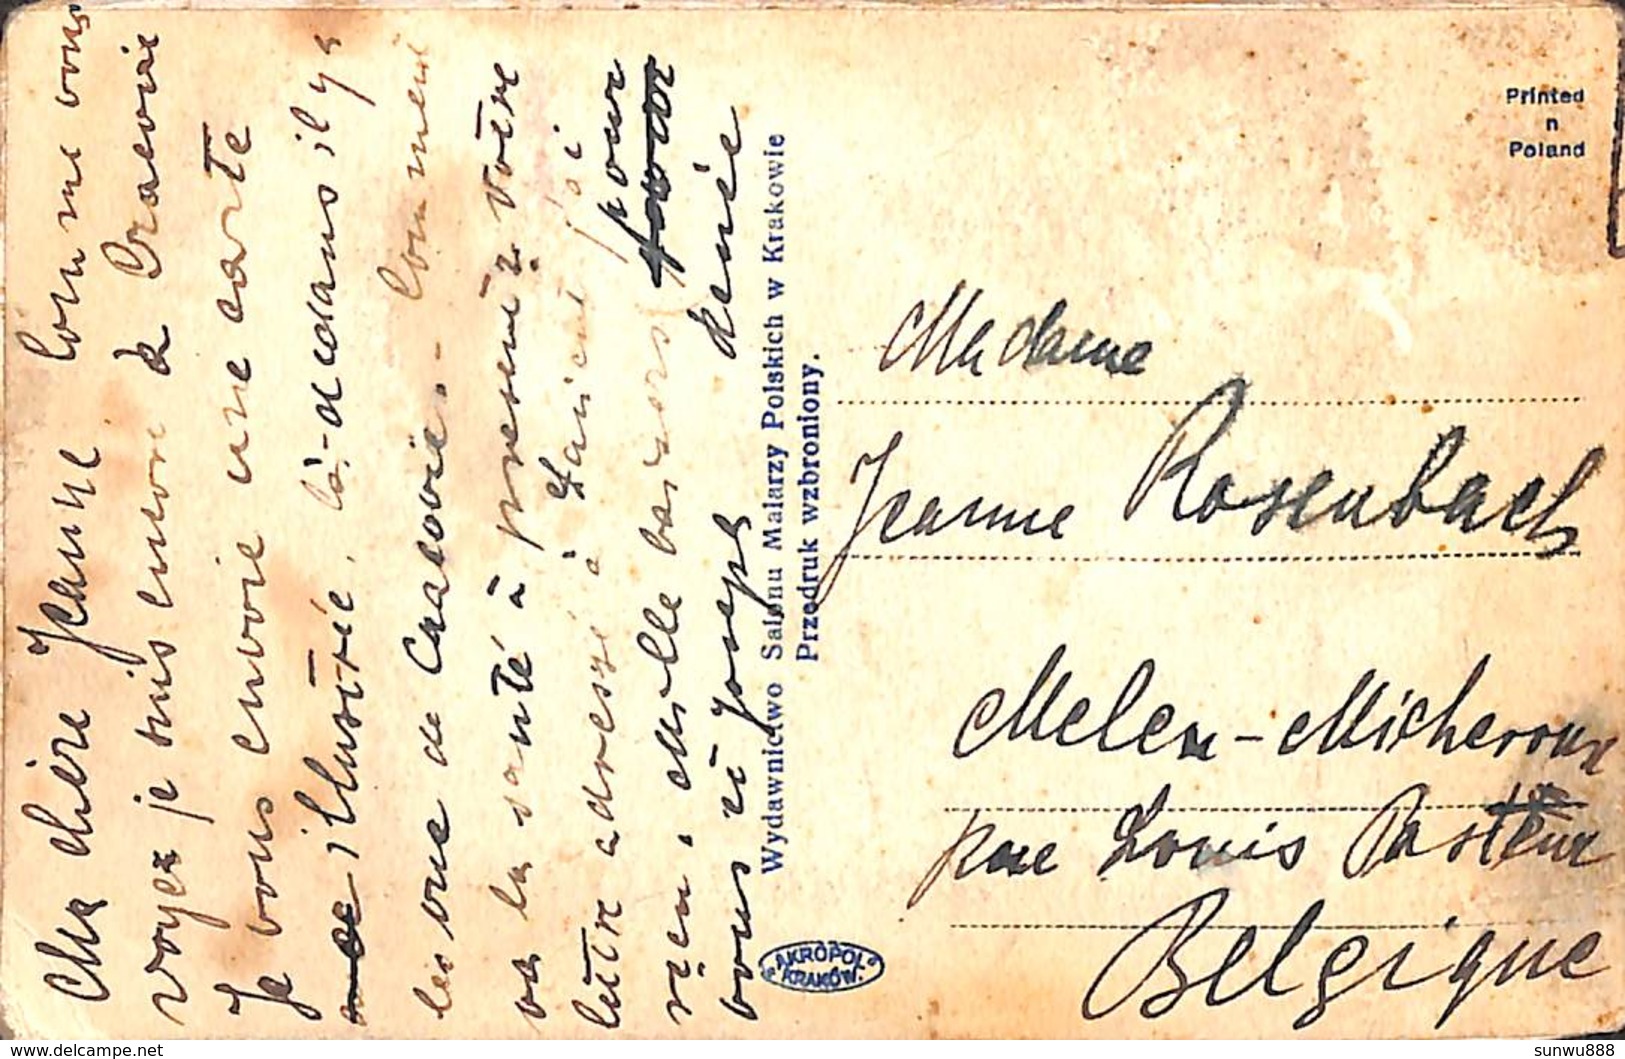 Ma chère Jeanne Comme vous
voyez je suis encore à Cracovie
Je vous envoie une carte
illustrée, là-dedans il y a
les vue de Cracovie. - Comment
va la santé à présent? Votre
lettre adressé à j'ai
reçu. Mille baisers pour
vous et Joseph
Wydawnictwo Salonu Malarzy Polskich w Krakowie
Przedruk wzbroniony.
AKROPOL
KRAKÓW.
Printed
n
Poland
Madame
Jeanne Rosenbach
Melen-Micheroux
Rue Louis Pasteur
Belgique
www.delcampe.net
sunwu888